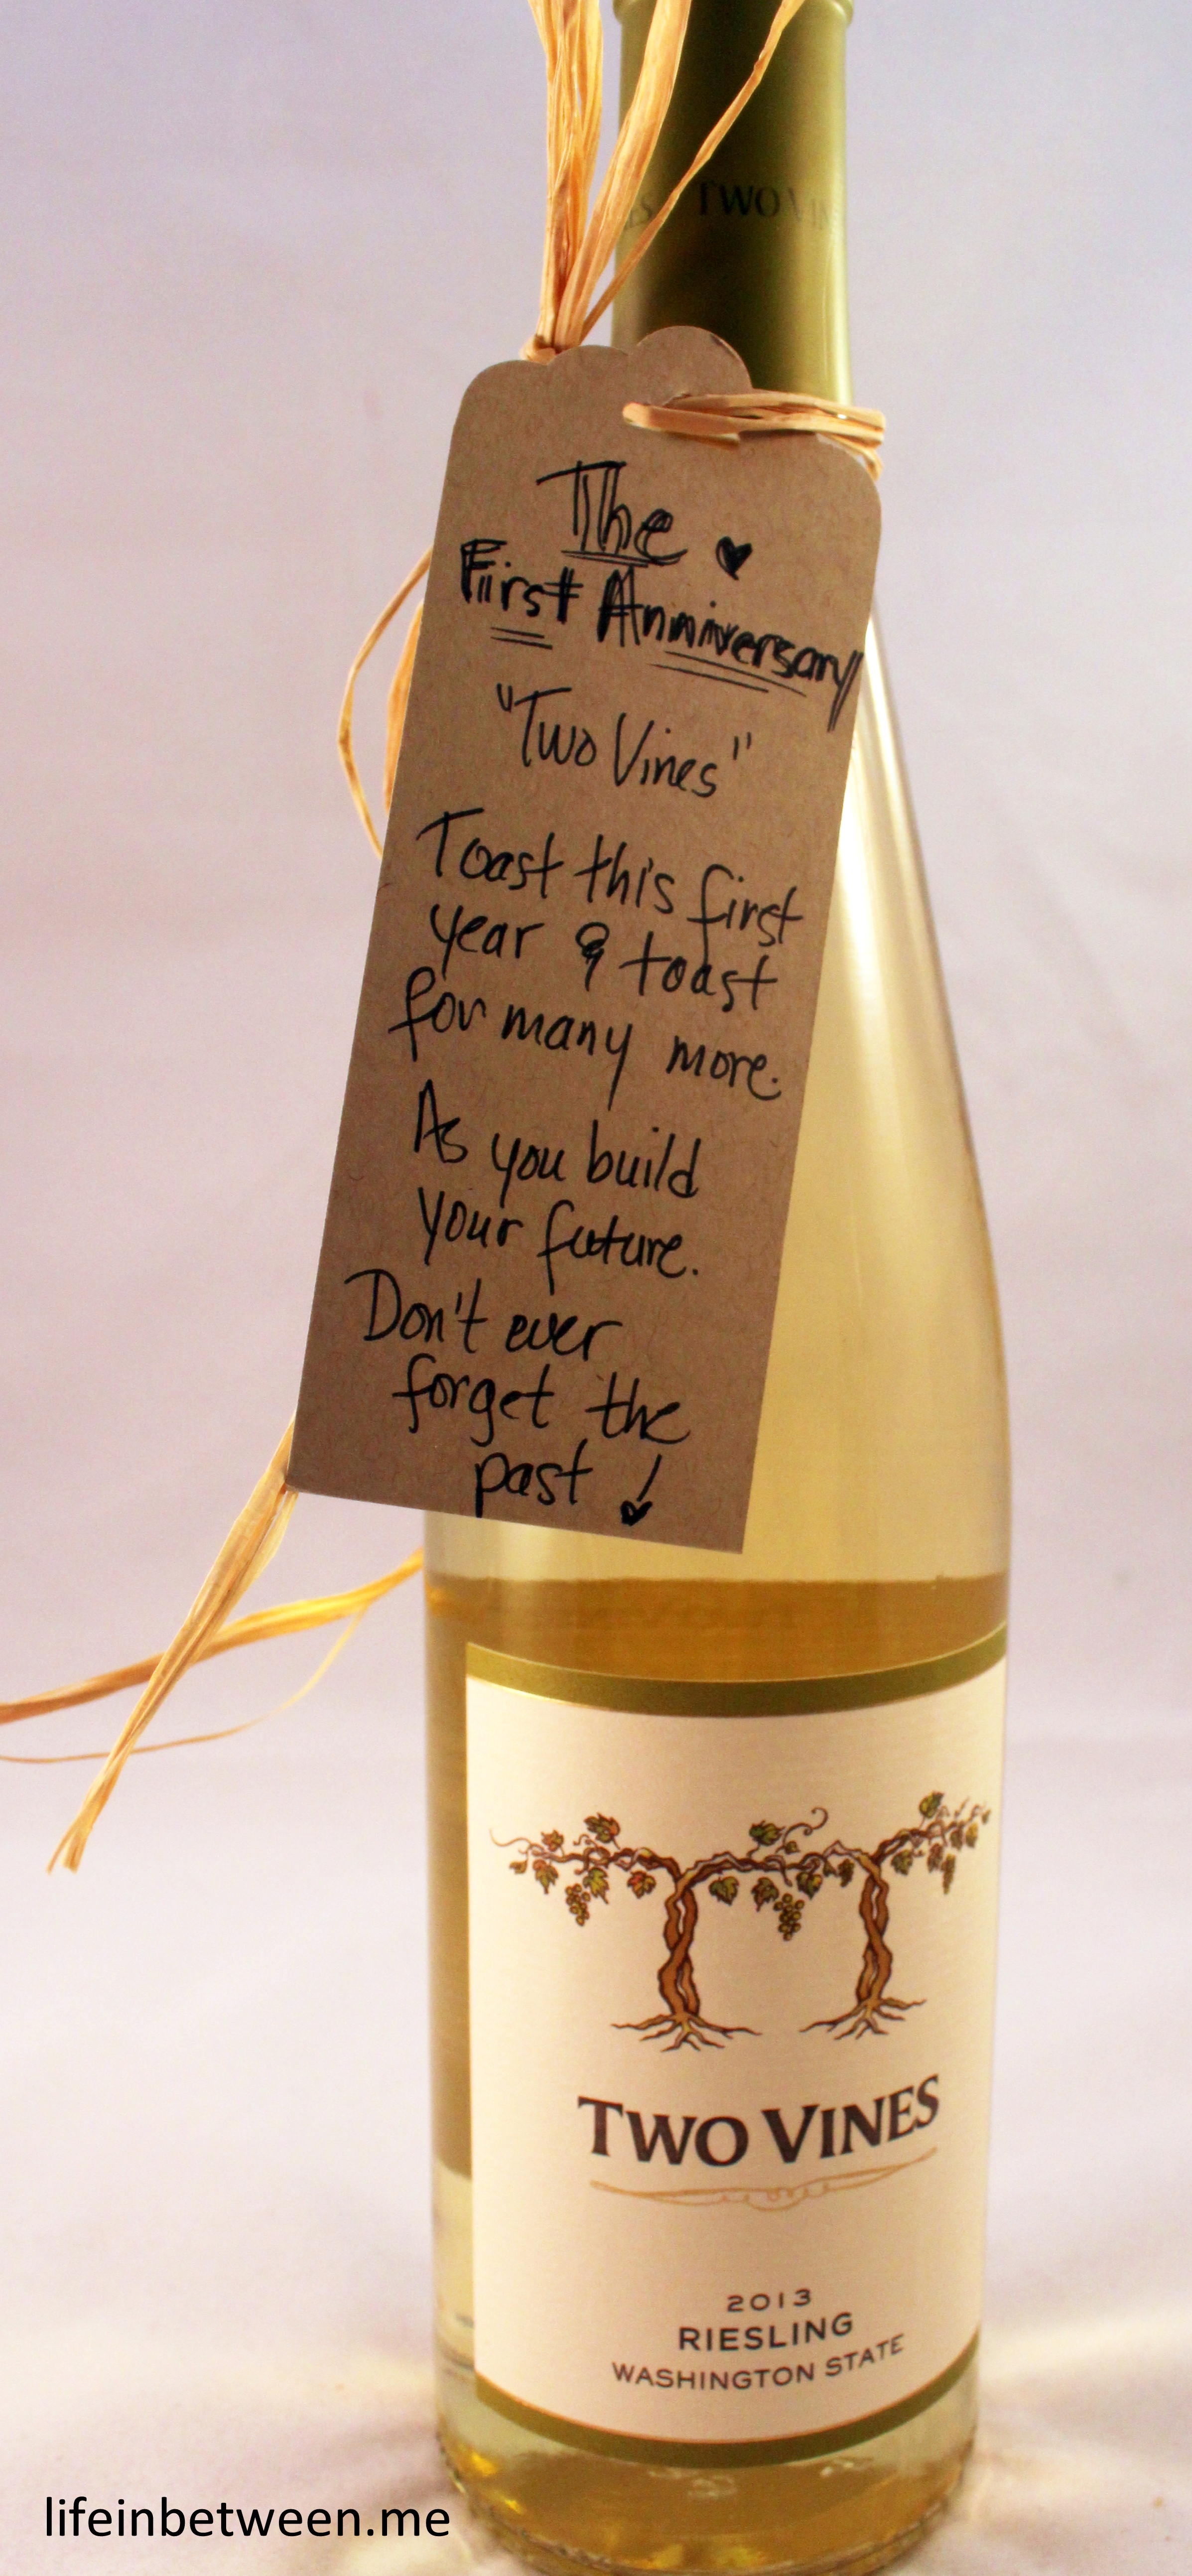 TWO VIN
The ♥
First Anniversary
"Two Vines"
Toast this first
year & toast
for many more.
As you build
your future.
Don't ever
forget the
past !
TWO VINES
2013
RIESLING
WASHINGTON STATE
lifeinbetween.me